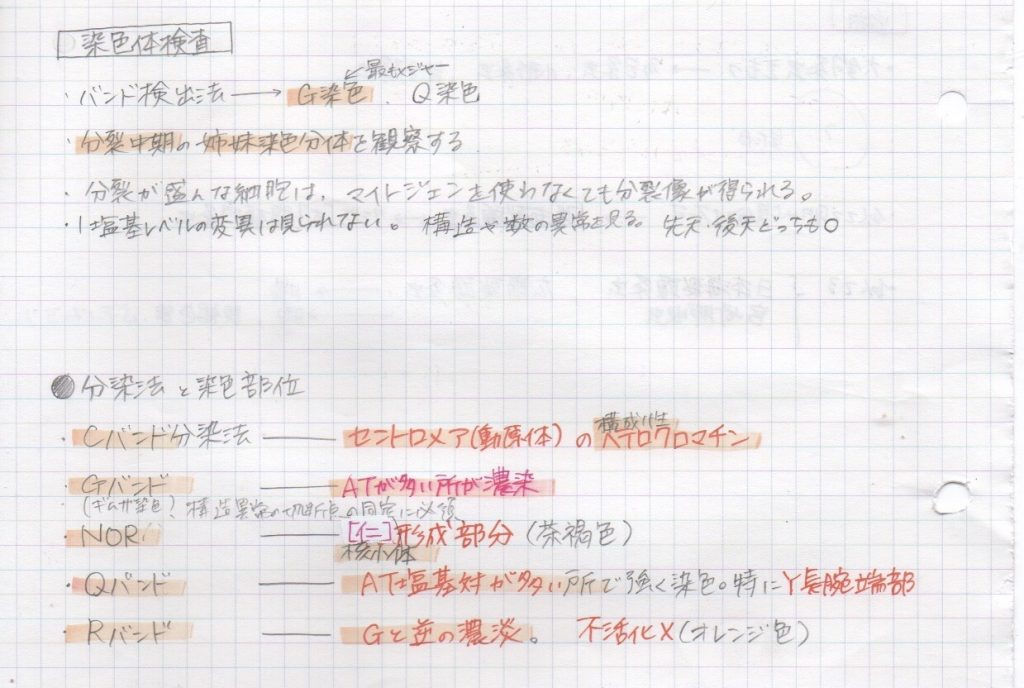 染色体検査
最もメジャー
・バンド検出法 → G染色、Q染色
・分裂中期の姉妹染色分体を観察する
・分裂が盛んな細胞は、マイトジェンを使わなくても分裂像が得られる。
・1塩基レベルの変異は見られない。構造や数の異常を見る。先天・後天どっちも○
●分染法と染色部位
・Cバンド分染法 —— セントロメア(動原体)の構成性ヘテロクロマチン
・Gバンド —— ATが多い所が濃染
(ギムザ染色)構造異常の切断点の同定に必須
・NOR —— [仁]形成部分(茶褐色)
核小体
・Qバンド —— AT塩基対が多い所で強く染色。特にY長腕端部
・Rバンド —— Gと逆の濃淡。 不活化X(オレンジ色)